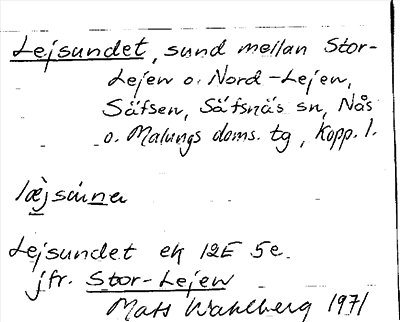 Lejsundet, sund mellan Stor-
Lejen o. Nord-Lejen,
Säfsen, Säfsnäs sn, Nås
o. Malungs doms. tg, Kopp. l.
Lejsundet ek 12E 5e.
jfr. Stor-Lejen
Mats Wahlberg 1971